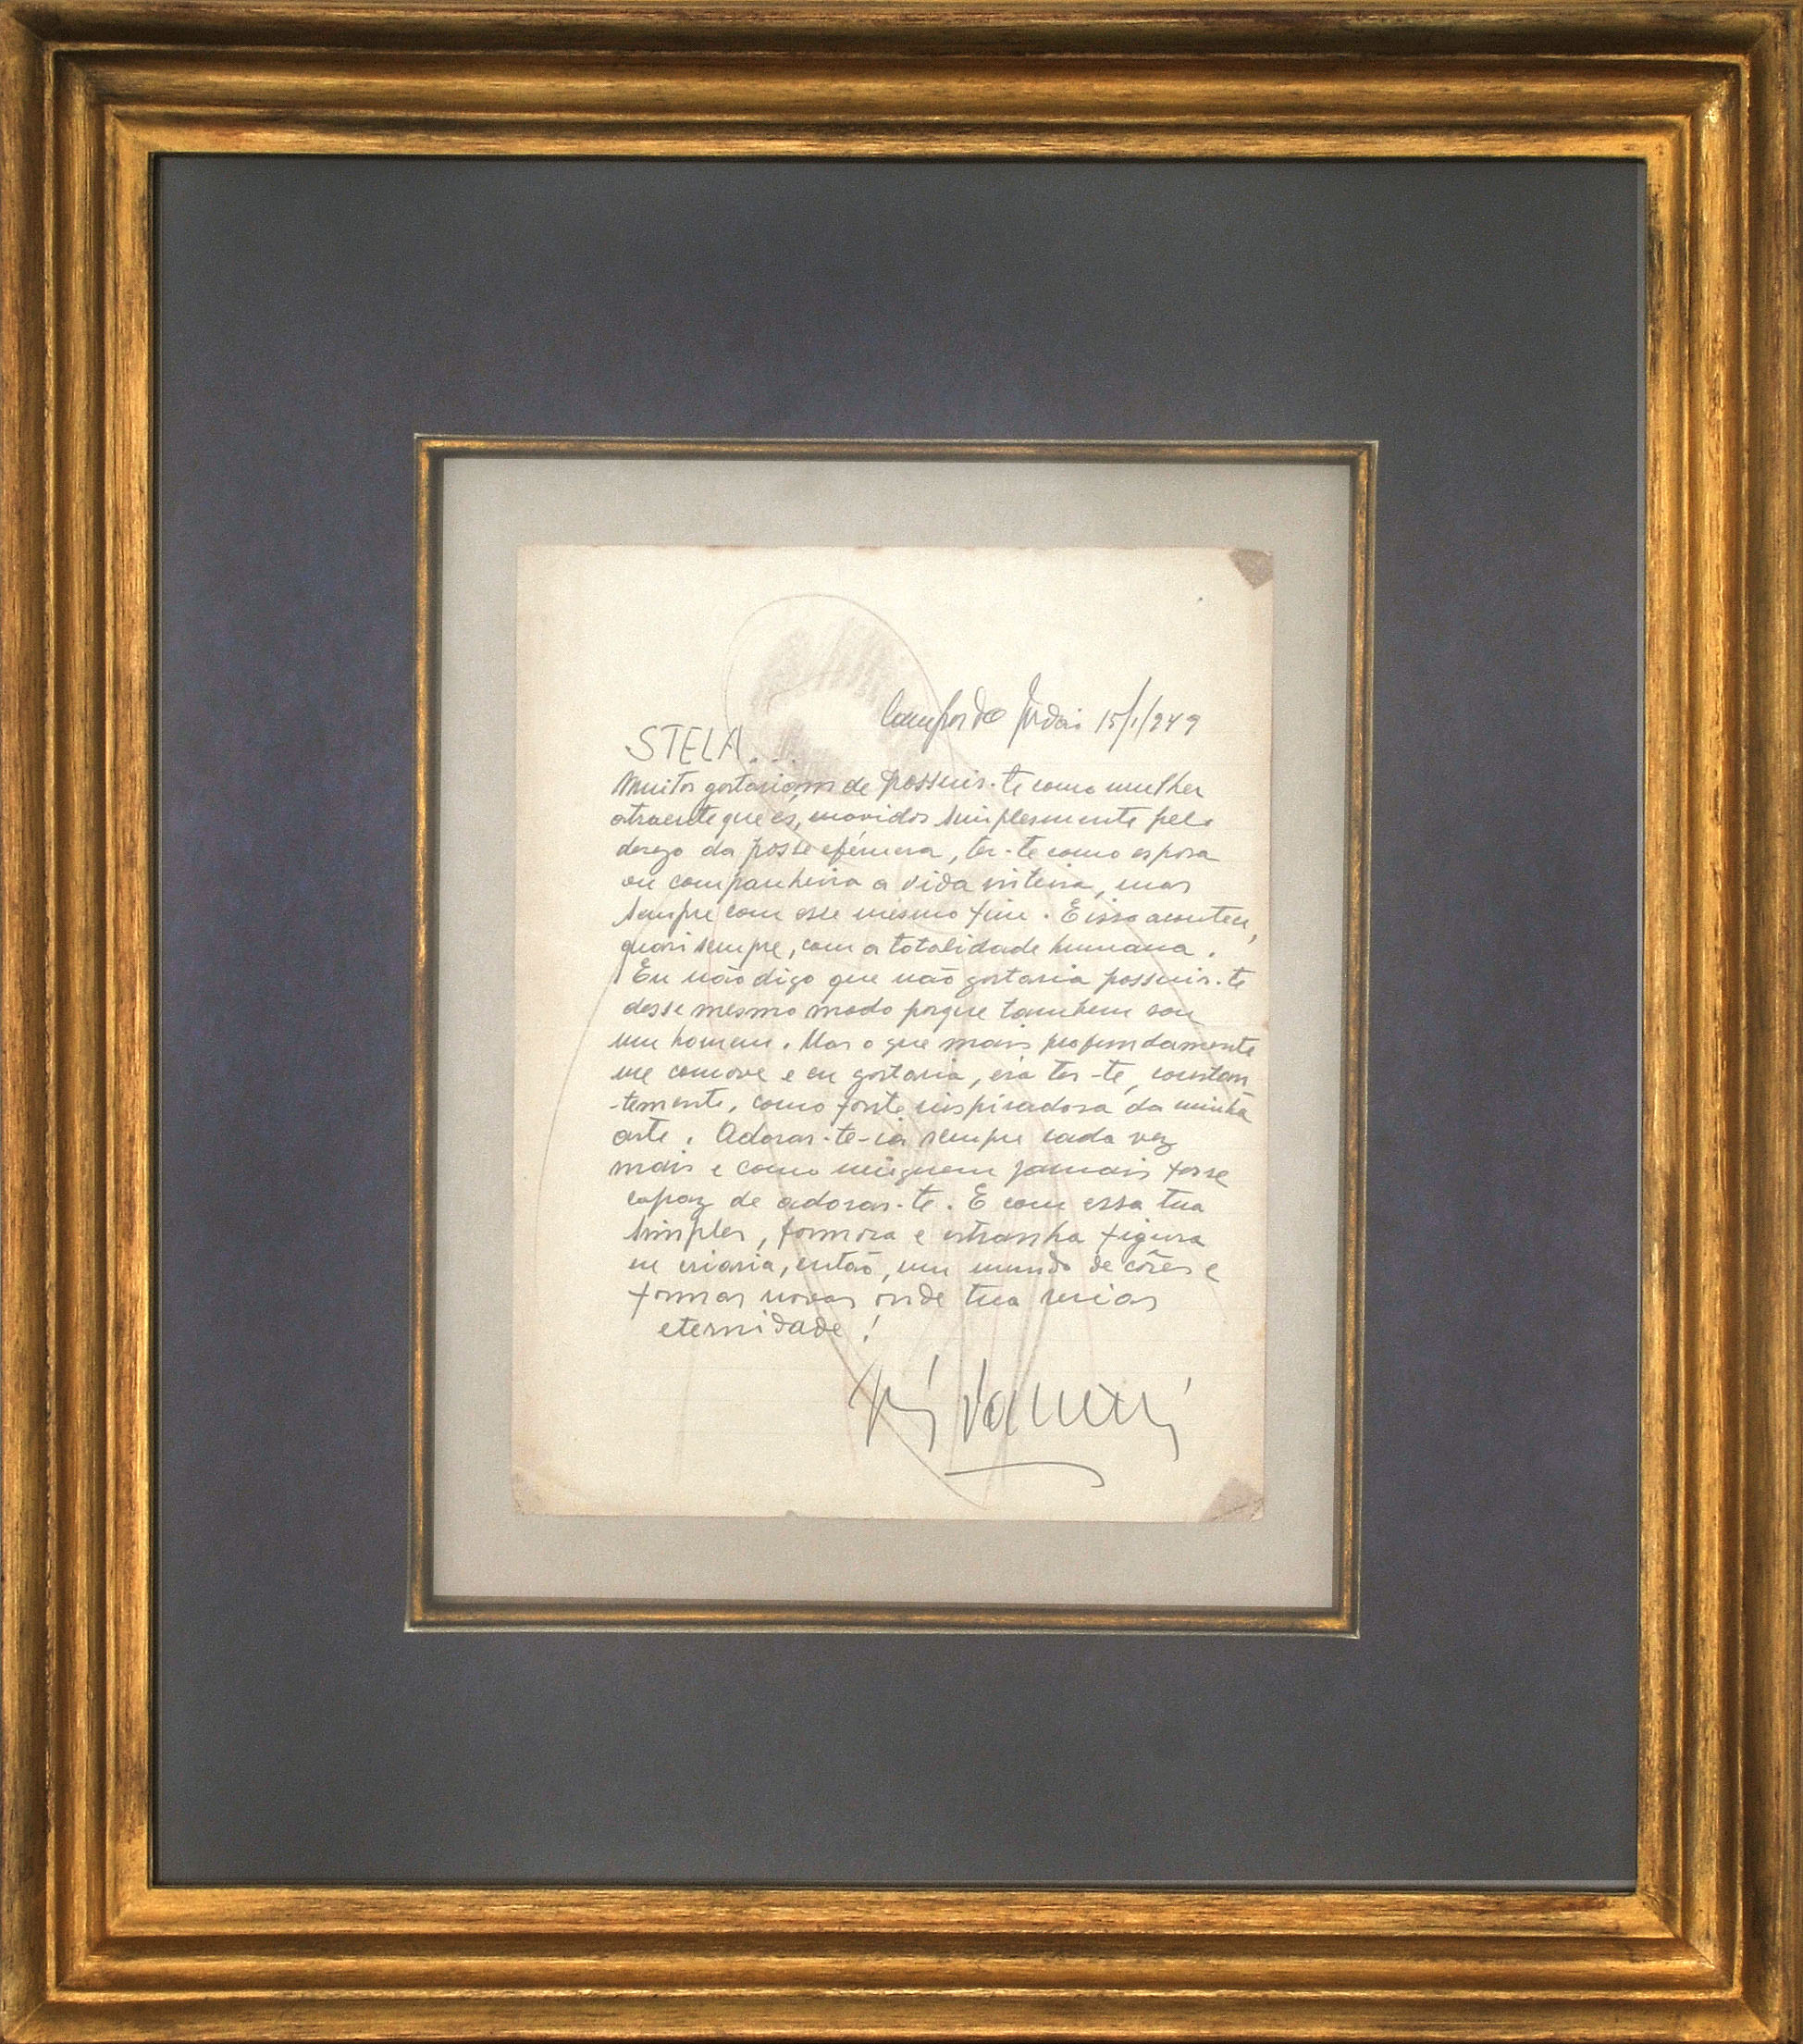 Campos do Jordão 15/1/949
STELA...
Muitos gostariam de possuir-te como mulher
atraente que és, movidos simplesmente pelo
desejo da posse efémera, ter-te como esposa
ou companheira a vida inteira, mas
sempre com esse mesmo fim. E isso acontece,
quasi sempre, com a totalidade humana.
Eu não digo que não gostaria possuir-te
desse mesmo modo porque tambem sou
um homem. Mas o que mais profundamente
me comove e eu gostaria, era ter-te, constan
-temente, como fonte inspiradora da minha
arte. Adorar-te-ia sempre cada vez
mais e como ninguem jamais fosse
capaz de adorar-te. E com essa tua
simples, formosa e estranha figura
eu criaria, então, um mundo de côres e
formas novas onde tua
eternidade!